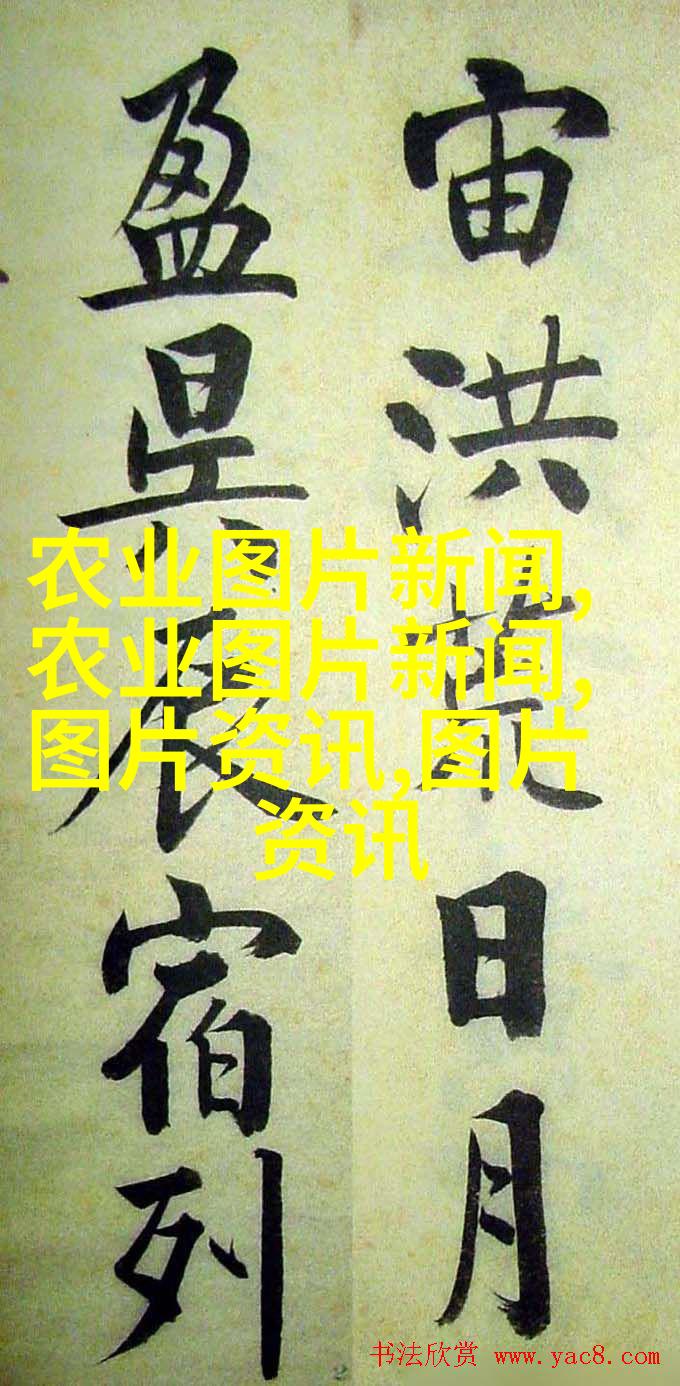 宙洪荒日月
盈昃辰宿列
农业图片新闻,
农业图片新闻,
图片资讯,图片
资讯
书法欣赏 www.yac8.com